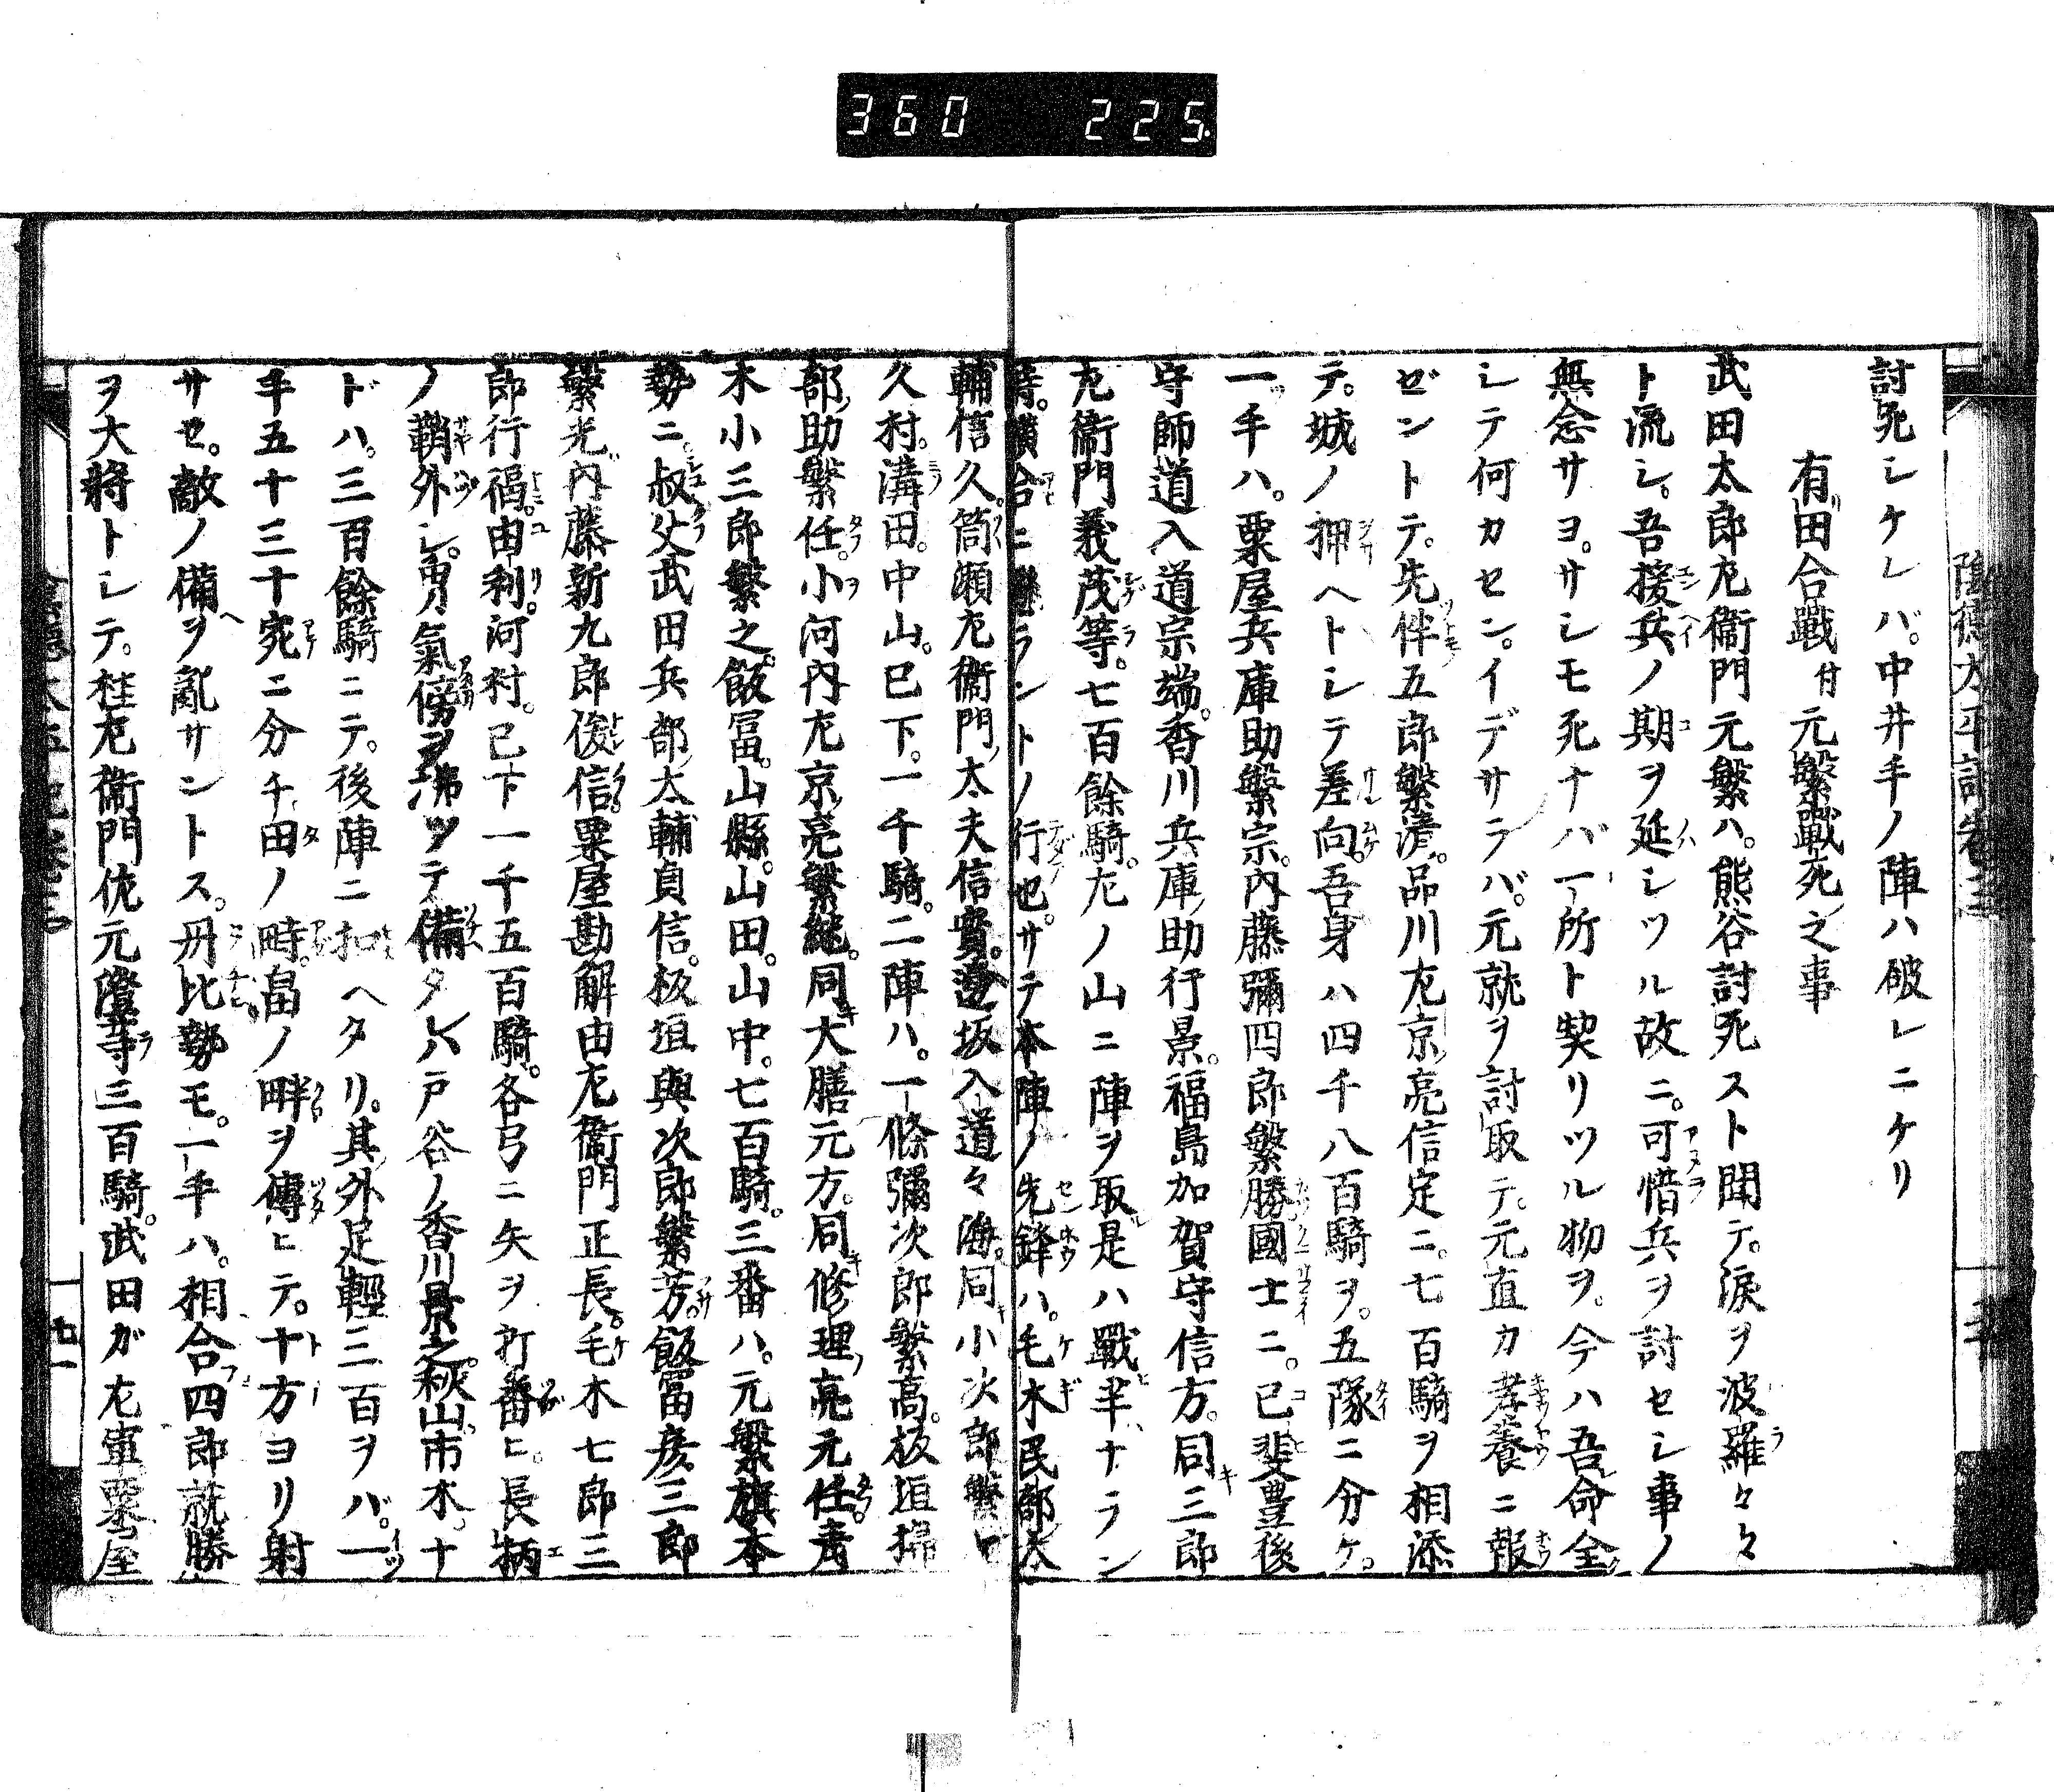 360 225.
討死シケレバ。中井手ノ陣ハ破レニケリ
有田合戰付元繁戰死之事
武田太郎左衞門元繁ハ。熊谷討死スト聞テ。涙ヲ波羅々々
ト流シ。吾援兵ノ期ヲ延シツル故ニ。可惜兵ヲ討セシ事ノ
無念サヨ。サシモ死ナバ一所ト契リツル物ヲ。今ハ吾命全
シテ何カセン。イデサラバ。元就ヲ討取テ。元直カ孝養ニ報
ゼントテ。先伴五郎繁清。品川左京亮信定ニ。七百騎ヲ相添
テ。城ノ押ヘトシテ差向。吾身ハ四千八百騎ヲ。五隊ニ分ケ。
一手ハ。粟屋兵庫助繁宗。内藤彌四郎繁勝。國士ニ。己斐豊後
守師道入道宗端。香川兵庫助行景。福島加賀守信方。同三郎
左衞門義茂等。七百餘騎。左ノ山ニ陣ヲ取是ハ戰半ナラン
時。横合ニ懸ラントノ行也。サテ本陣ノ先鋒ハ。毛木民部太
輔信久。筒瀬左衞門太夫信實。逆坂入道々海。同小次郎繁
久村。溝田。中山。已下。一千騎。二陣ハ。一條彌次郎繁高。板垣掃
部助繁任。小河内左京亮繁継。同大膳元方。同修理亮元任。青
木小三郎繁之。飯冨。山縣。山田。山中。七百騎。三番ハ。元繁旗本
勢ニ。叔父武田兵部太輔貞信。板垣與次郎繁芳。飯冨彦三郎
繁光。内藤新九郎俊信。粟屋勘解由左衞門正長。毛木七郎三
郎行福。由利。河村。已下一千五百騎。各弓ニ矢ヲ打番ヒ。長柄
ノ鞘外シ。勇氣傍ヲ拂ツテ備タレバ戸谷ノ香川景之。秋山市木。ナ
ドハ。三百餘騎ニテ。後陣ニ扣ヘタリ。其外足輕三百ヲバ。一
手五十三十宛ニ分チ。田ノ畤。畠ノ畔ヲ傳ヒテ。十方ヨリ射
サセ。敵ノ備ヲ亂サントス。丹比勢モ。一手ハ。相合四郎就勝
ヲ大將トシテ。桂左衞門佐元澄等三百騎。武田ガ左軍粟屋